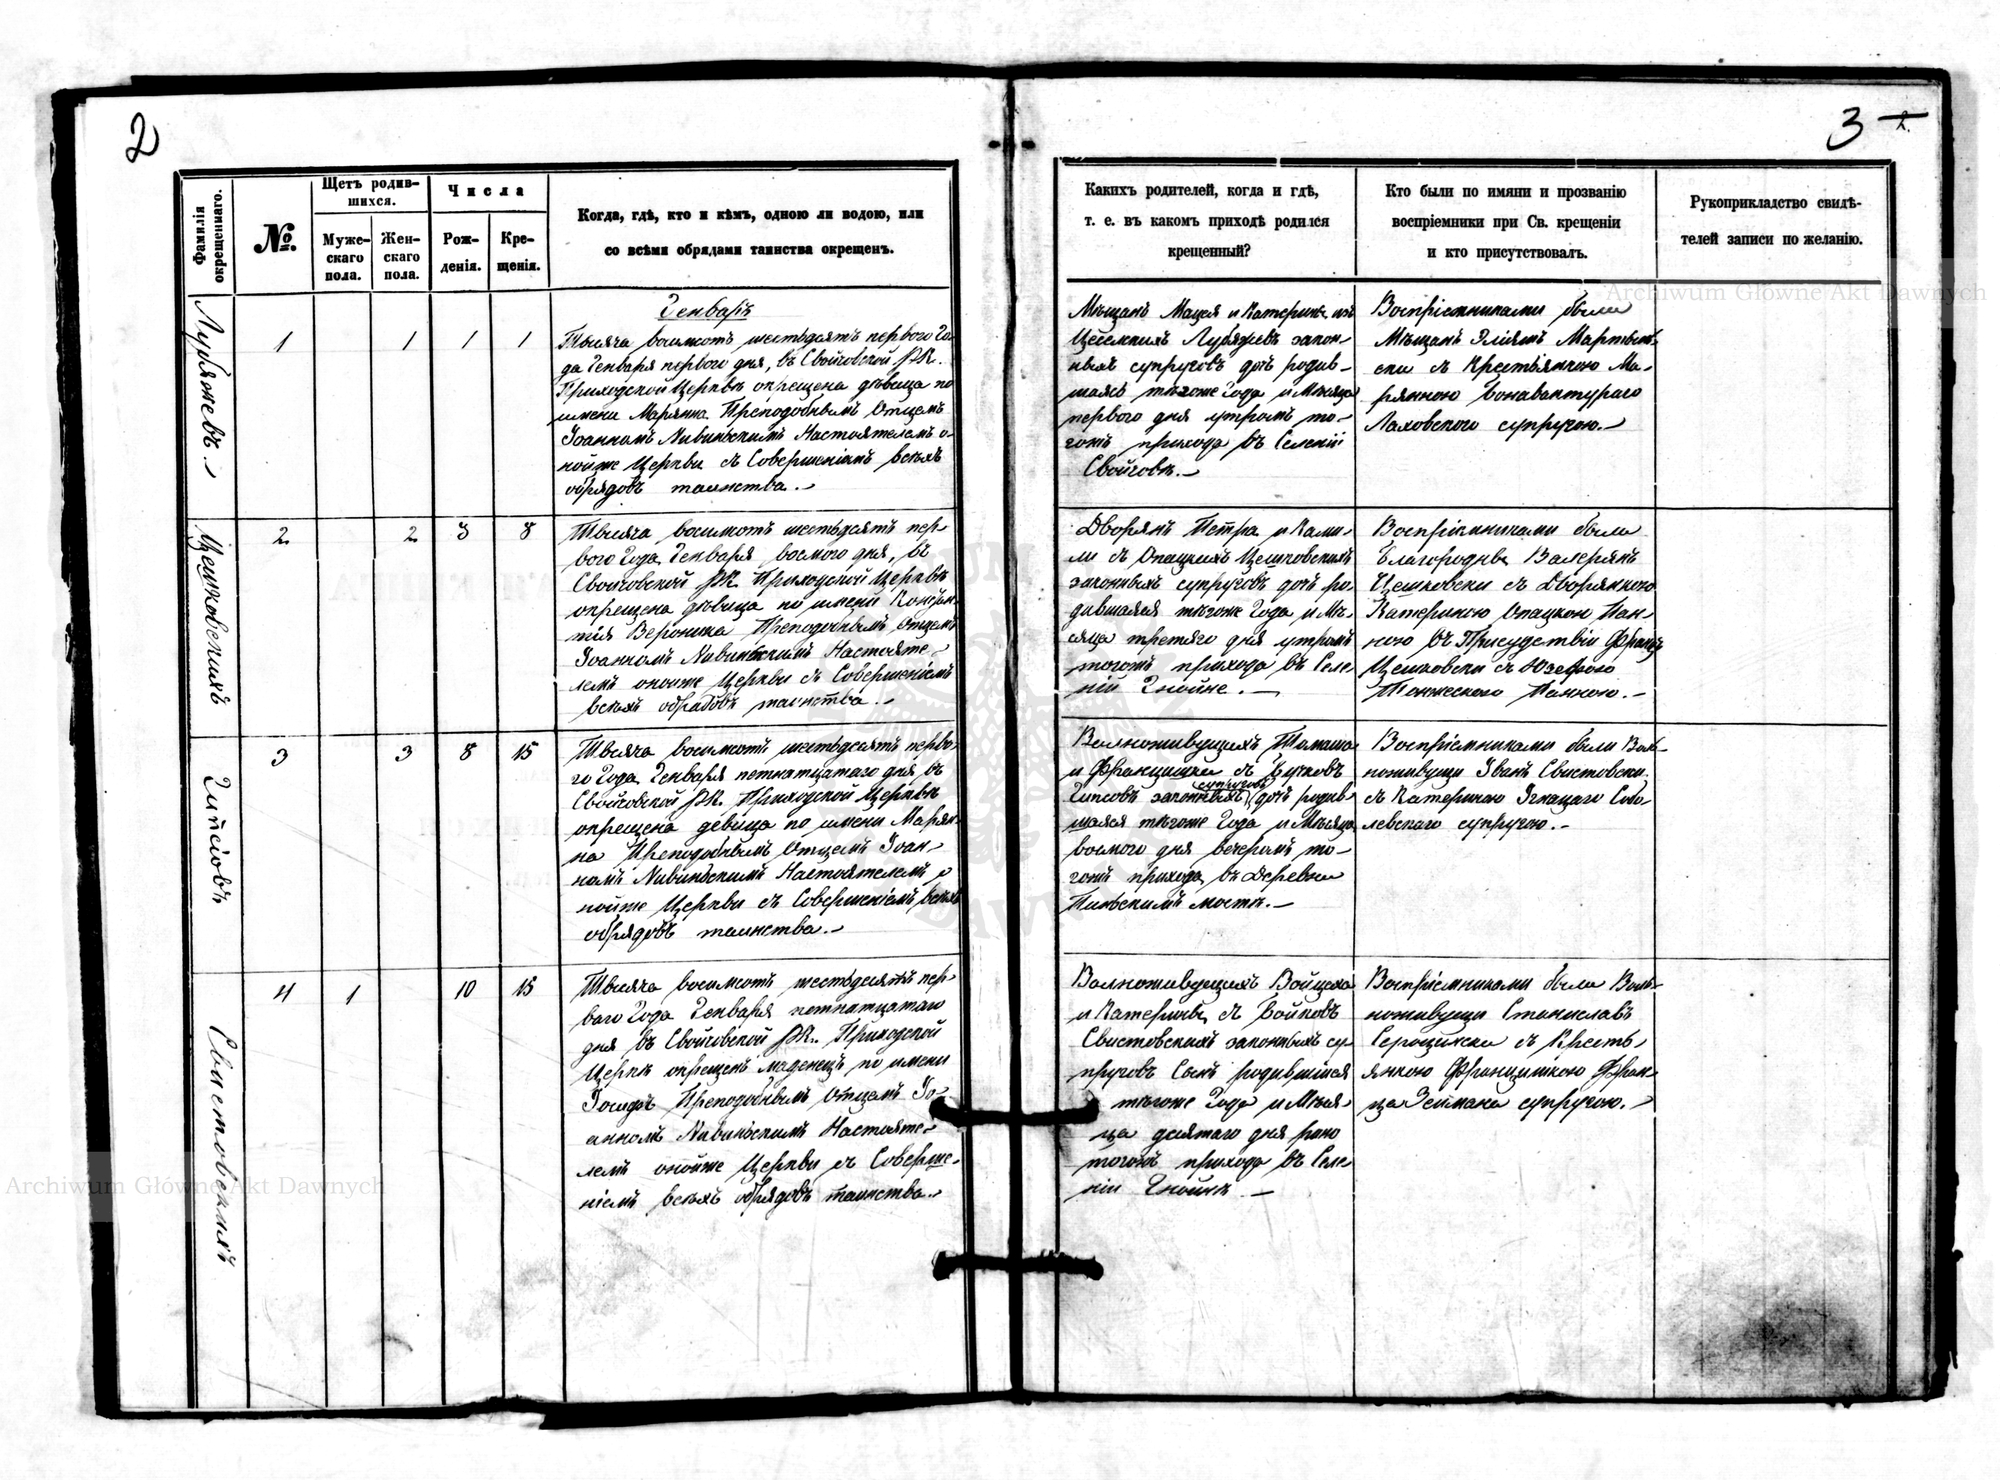 2
3
Archiwum Główne Akt Dawnych
Фамилія
окрещеннаго.
№.
Щетъ родив-
шихся.
Муже-
скаго
пола.
Жен-
скаго
пола.
Числа
Рож-
денія.
Кре-
щенія.
Когда, гдѣ, кто и кѣмъ, одною ли водою, или
со всѣми обрядами таинства окрещенъ.
Каких родителей, когда и гдѣ,
т. е. въ какомъ приходѣ родился
крещенный?
Кто были по имяни и прозванію
воспріемники при Св. крещеніи
и кто присутствовалъ.
Рукоприкладство свидѣ-
телей записи по желанію.
1
1
1
1
Генварь
Тысяча восимсотъ шестьдесятъ первого Го-
да Генваря первого дня, въ Свойчовской РК.
Приходской Церквѣ окрещена дѣвица по
имени Марянна Преподобнымъ Отцемъ
Іоанномъ Настоятелемъ о-
нойже Церкви съ Совершеніемъ всѣхъ
обрядовъ таинства.
Мѣщанъ Мацея и Катерины изъ
закон-
ныхъ супруговъ дочь родив-
шаяся тѣгоже Года и Мѣсяца
первого дня утромъ то-
гожъ прихода въ Селеніи
Свойчовѣ.
Воспріемниками были
Мѣщанъ
съ Крестьянкою Ма-
рянною Бонавентураго
Лаховского супругою.
Цешковскихъ
2
2
3
8
Тысяча восимсотъ шестьдесятъ пер-
вого Года Генваря восмого дня, въ
Свойчовской РК. Приходской Церквѣ
окрещена дѣвица по имени Констан-
тія Вероника Преподобнымъ Отцемъ
Іоанномъ Настояте-
лемъ онойже Церкви съ Совершеніемъ
всѣхъ обрядовъ таинства.
Дворянъ Петра и Ками-
ли съ Опацкихъ Цешковскихъ
законныхъ супруговъ дочь ро-
дившаяся тѣгоже Года и Мѣ-
сяца третяго дня утромъ
тогожъ прихода въ Селе-
ніи Гнойне.
Воспріемниками были
Благородный Валерянъ
Цешковски съ Дворянкою
Катериною Опацкою Пан-
ною въ Присудствіи Франц.
Цешковски съ Юзефою
Панною.
Гипсіовъ
3
3
8
15
Тысяча восимсотъ шестьдесятъ перво-
го Года Генваря петнатцатаго дня, въ
Свойчовской РК. Приходской Церквѣ
окрещена девица по имени Марян-
на Преподобнымъ Отцемъ Іоан-
номъ Настоятелемъ о-
нойже Церкви съ Совершеніемъ всѣхъ
обрядовъ таинства.
Волноживущихъ Томаша
и Францишки съ
Гипсовъ законныхъ супруговъ дочь родив-
шаяся тѣгоже Года и Мѣсяца
восмого дня вечеромъ то-
гожъ прихода въ Деревни
мостѣ.
Воспріемниками были Вол-
ноживущи Иванъ Свистовски
съ Катериною Игнацаго Собо-
левскаго супругою.
Свистовскихъ
4
1
10
15
Тысяча восимсотъ шестьдесятъ пер-
ваго Года Генваря петнатцатаго
дня въ Свойчовской РК. Приходской
Церквѣ окрещенъ маденецъ по имени
Іосифъ Преподобнымъ Отцемъ Іо-
анномъ Настояте-
лемъ онойже Церкви съ Соверше-
ніемъ всѣхъ обрядовъ таинства.
Волноживущихъ Войцеха
и Катерины съ Бойковъ
Свистовскихъ законныхъ су-
пруговъ Сынъ родившійся
тѣгоже Года и Мѣся-
ца десятаго дня рано
тогожъ прихода въ Селе-
ніи Гнойнѣ
Воспріемниками были Вол-
ноживущи Станиславъ
съ Кресть-
янкою Францишкою Фран-
ца супругою.
Archiwum Główne Akt Dawnych